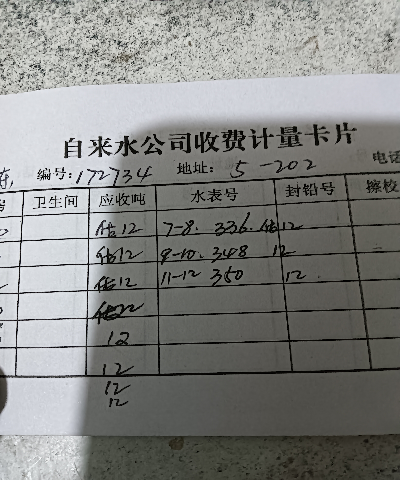 自来水公司收费计量卡片
编号:172734 地址: 5-202 电话
卫生间 应收吨 水表号 封铅号 擦校
估12 7-8. 336. 估12
估12 9-10. 348 12
估12 11-12 350 12.
12
12
12
12